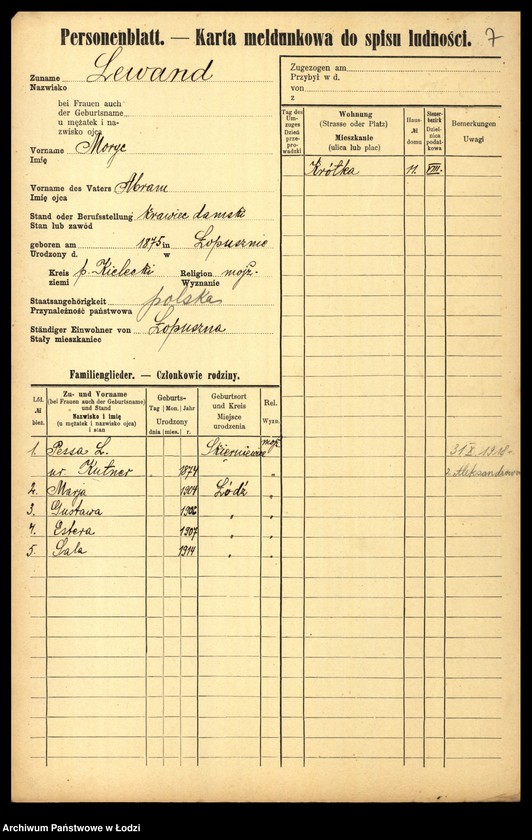 Personenblatt. — Karta meldunkowa do spisu ludności. 7
Zuname Lewand
Nazwisko
bei Frauen auch
der Geburtsname
u mężatek i na-
zwisko ojca
Vorname Moryc
Imię
Vorname des Vaters Abram
Imię ojca
Stand oder Berufsstellung krawiec damski
Stan lub zawód
geboren am 1875 in Łopusznie
Urodzony d. w
Kreis p. Kielecki Religion mojż.
ziemi Wyznanie
Staatsangehörigkeit polska
Przynależność państwowa
Ständiger Einwohner von Łopuszna
Stały mieszkaniec
Zugezogen am
Przybył w d.
von
z
Tag des Um-zuges Dzień prze-prowadzki
Wohnung
(Strasse oder Platz)
Mieszkanie
(ulica lub plac)
Haus-
№
domu
Steuer-
bezirk
Dziel-
nica
podat-
kowa
Bemerkungen
Uwagi
Krótka 11. VIII.
31 X 1918
z Aleksandrowa
Familienglieder. — Członkowie rodziny.
Lfd.
№
bież.
Zu- und Vorname
(bei Frauen auch der Geburtsname)
und Stand
Nazwisko i imię
(u mężatek i nazwisko ojca)
i stan
Geburts-
Tag Mon. Jahr
Urodzony
dnia mies. r.
Geburtsort
und Kreis
Miejsce
urodzenia
Rel.
Wyzn.
1. Pessa L. Skierniewice mojż.
ur. Kutner 1874 "
2. Marja 1914 Łódź "
3. Gustawa " "
4. Estera 1907 " "
5. Sala 1914 " "
Archiwum Państwowe w Łodzi